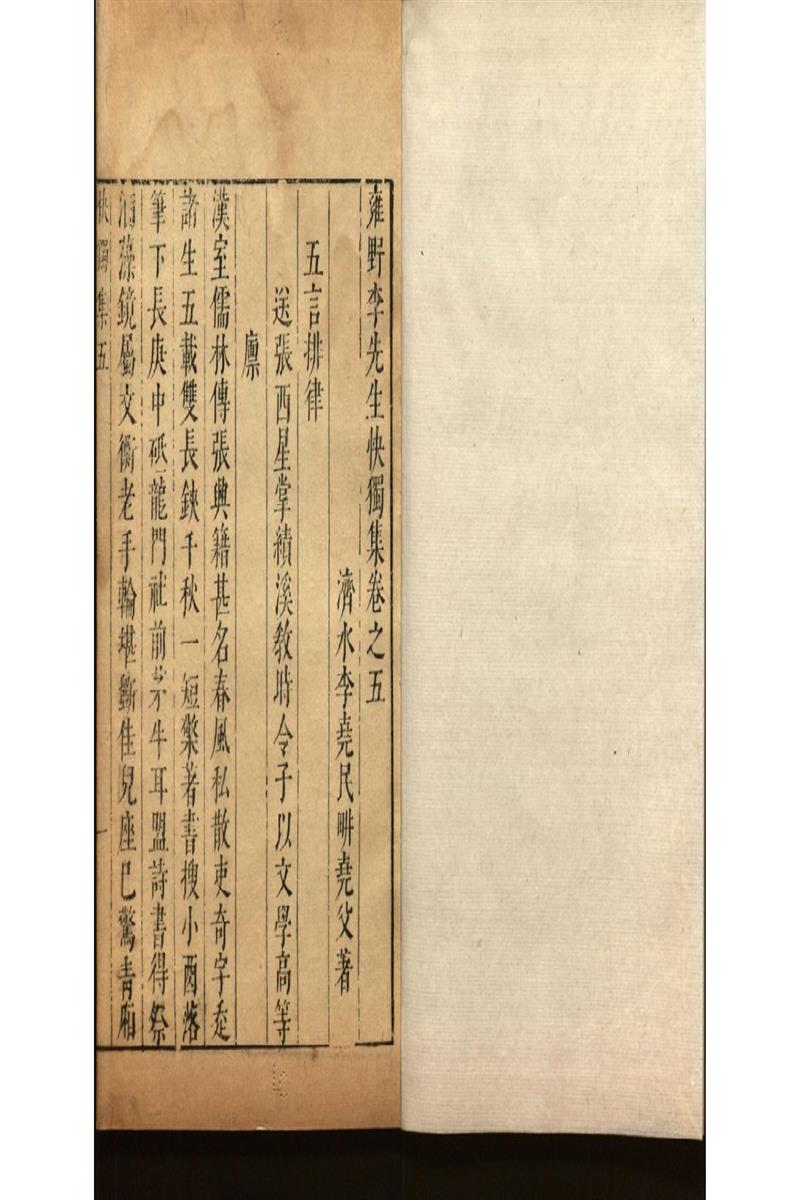 雍野李先生快獨集卷之五
濟水李堯民畊堯父著
五言排律
送張酉星掌績溪教時令子以文學高等
廩
漢室儒林傳張輿籍甚名春風私散吏奇字走
諸生五載雙長鋏千秋一短檠著書搜小酉落
筆下長庚中砥龍門社前茅牛耳盟詩書得祭
酒藻鏡屬文衡老手輪堪斵佳兒座已驚青廂
快獨集五
一